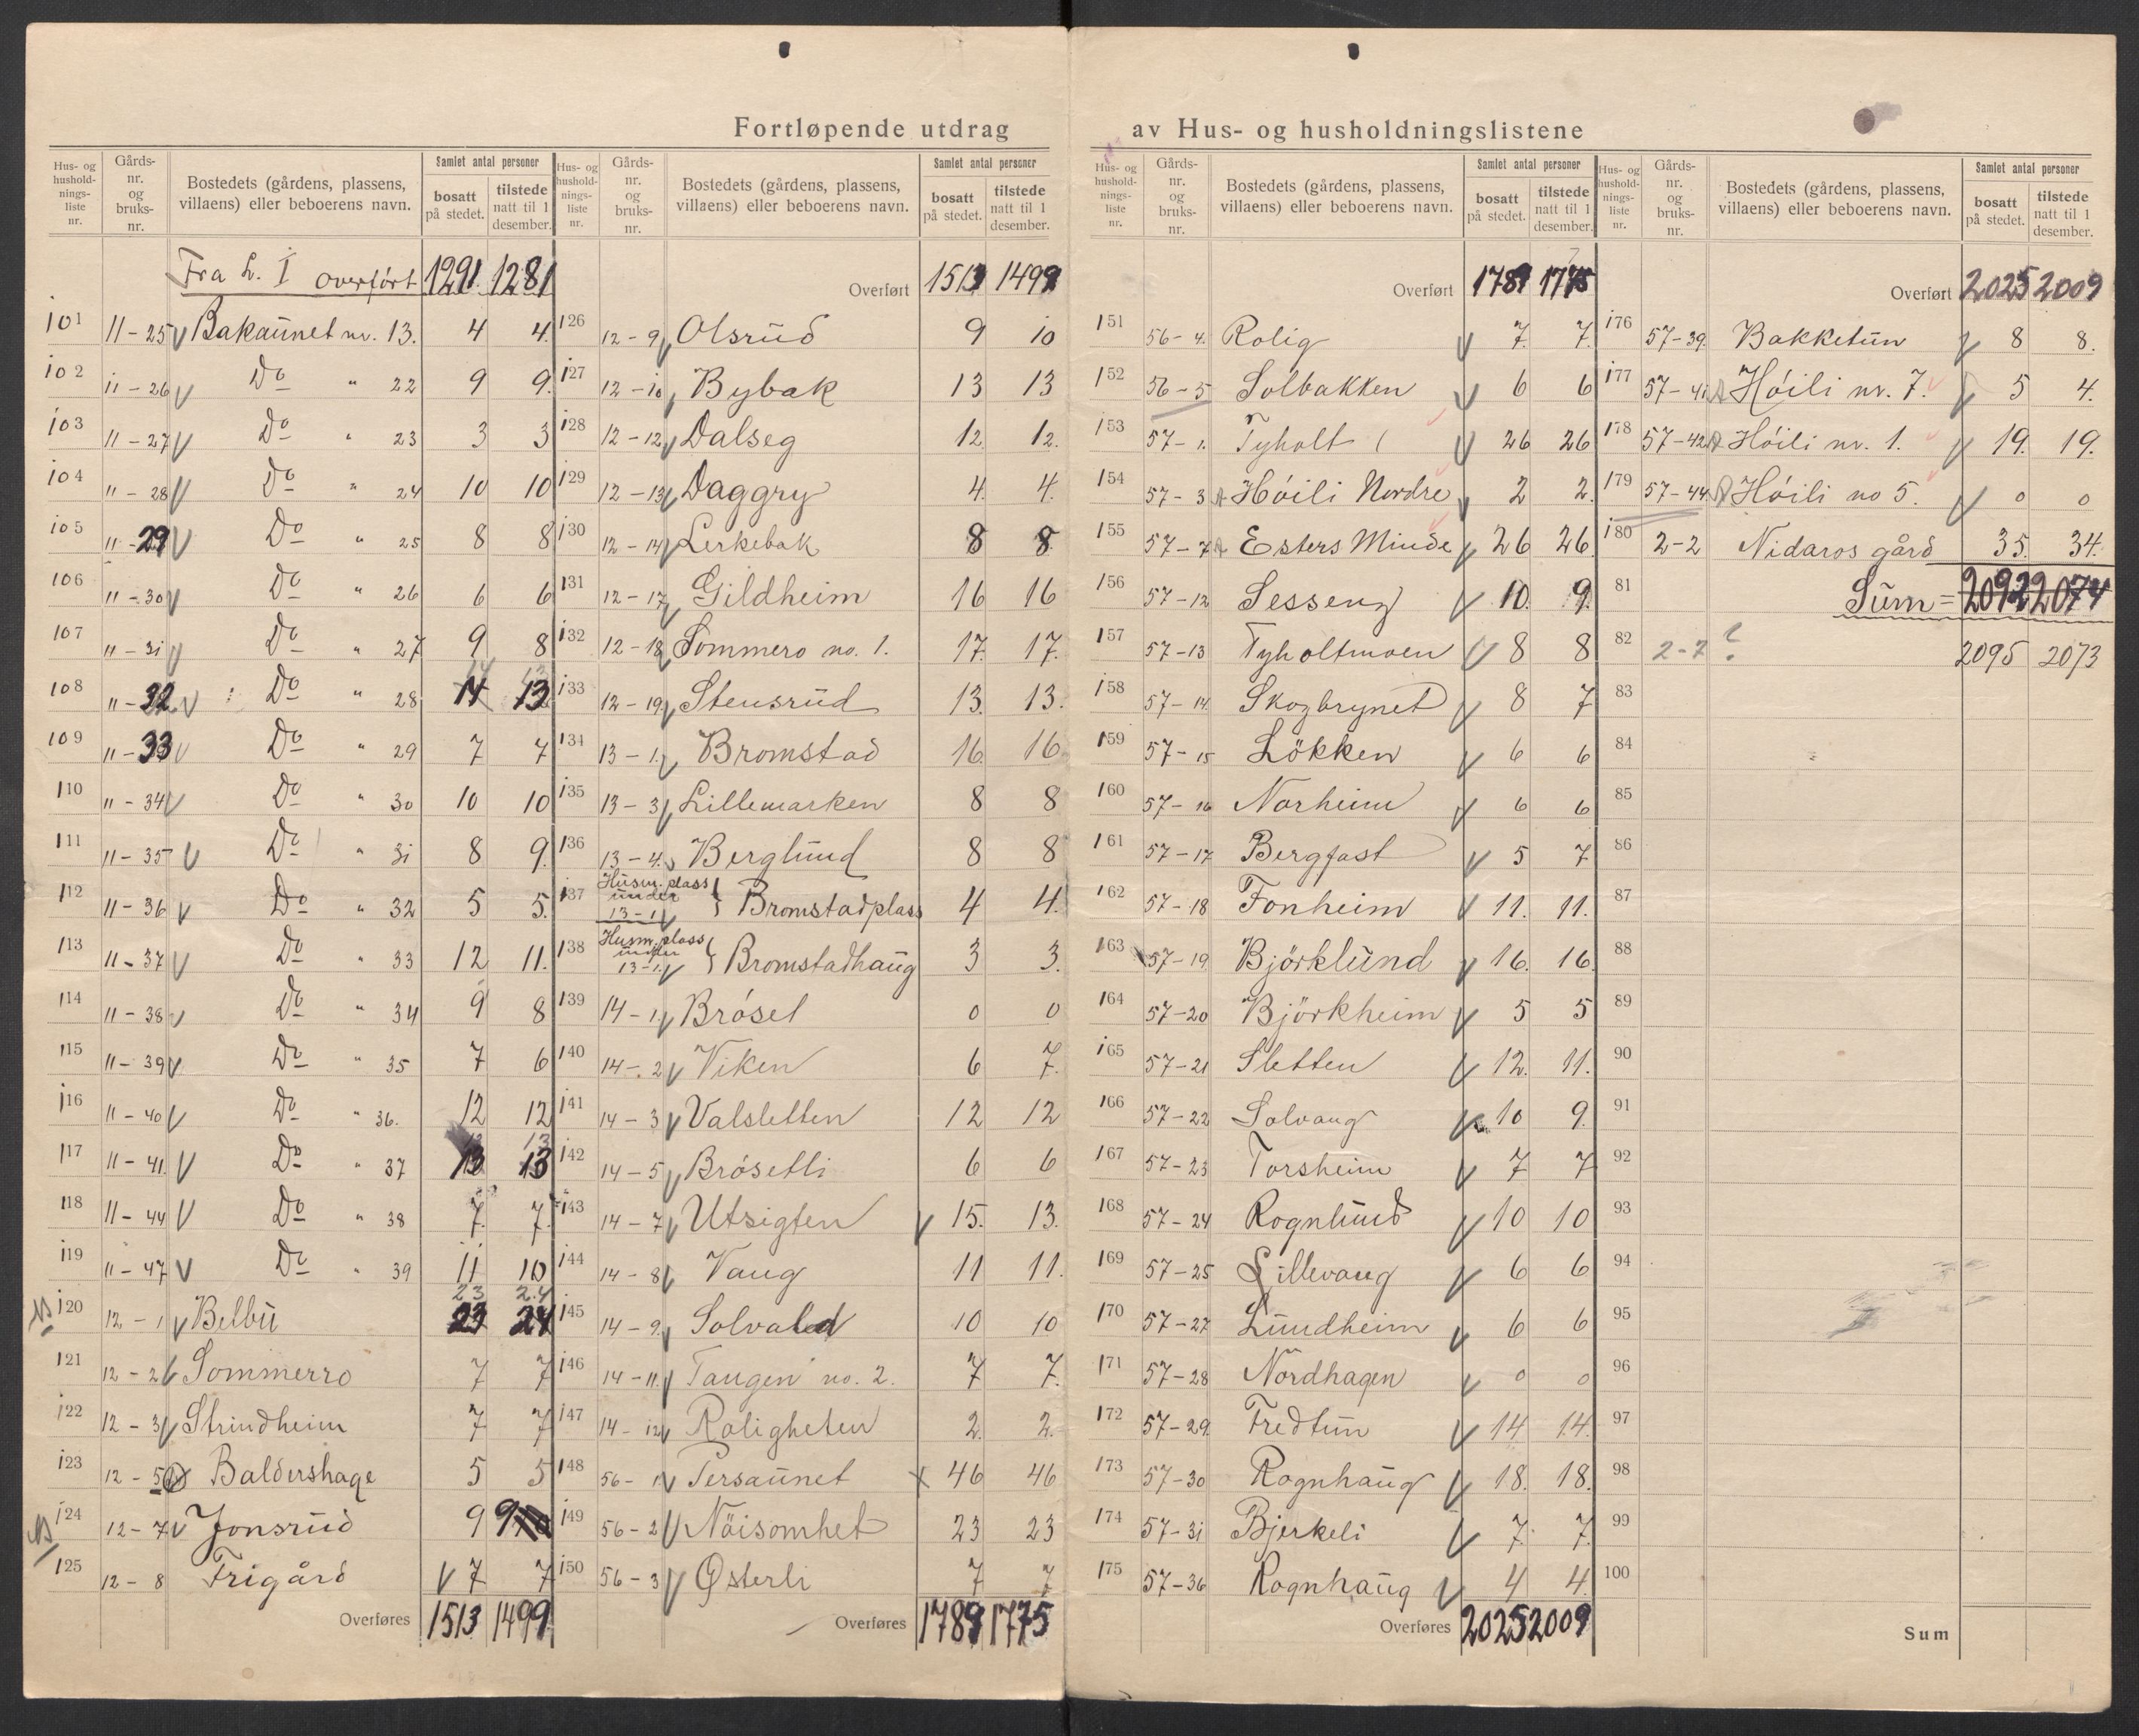 Fortløpende utdrag av Hus- og husholdningslistene
Hus- og husholdnings-liste nr. | Gårds-nr. og bruks-nr. | Bostedets (gårdens, plassens, villaens) eller beboerens navn. | Samlet antal personer bosatt på stedet. | tilstede natt til 1 desember.
Fra L. I overført 1291 1281
101 11-25 Bakaunet nr. 13. 4 4
102 11-26 Do " 22 9 9
103 11-27 Do " 23 3 3
104 11-28 Do " 24 10 10
105 11-29 Do " 25 8 8
106 11-30 Do " 26 6 6
107 11-31 Do " 27 9 8
108 11-32 Do " 28 14 13
109 11-33 Do " 29 7 7
110 11-34 Do " 30 10 10
111 11-35 Do " 31 8 9
112 11-36 Do " 32 5 5
113 11-37 Do " 33 12 11
114 11-38 Do " 34 9 8
115 11-39 Do " 35 7 6
116 11-40 Do " 36. 12 12
117 11-41 Do " 37 13 13
118 11-44 Do " 38 7 7
119 11-47 Do " 39 11 10
120 12-1 Belbu 23 24
121 12-2 Sommerro 7 7
122 12-3 Strindheim 7 7
123 12-5 Baldershage 5 5
124 12-7 Jonsrud 9 9
125 12-8 Frigård 7 7
Overføres 1513 1499
Hus- og husholdnings-liste nr. | Gårds-nr. og bruks-nr. | Bostedets (gårdens, plassens, villaens) eller beboerens navn. | Samlet antal personer bosatt på stedet. | tilstede natt til 1 desember.
Overført 1513 1499
126 12-9 Olsrud 9 10
127 12-10 Bybak 13 13
128 12-12 Dalseg 12 12
129 12-13 Daggry 4 4
130 12-14 Lerkebak 8 8
131 12-17 Gildheim 16 16
132 12-18 Sommero no. 1. 17 17
133 12-19 Stensrud 13 13
134 13-1 Bromstad 16 16
135 13-3 Lillemarken 8 8
136 13-4 Berglund 8 8
137 Husm.plass under 13-1 Bromstadplass 4 4
138 Husm.plass under 13-1 Bromstadhaug 3 3
139 14-1 Brøset 0 0
140 14-2 Viken 6 7
141 14-3 Valsletten 12 12
142 14-5 Brøsetli 6 6
143 14-7 Utsigten 15 13
144 14-8 Vang 11 11
145 14-9 Solvald 10 10
146 14-11 Tangen no. 2. 7 7
147 14-12 Roligheten 2 2
148 56-1 Persaunet 46 46
149 56-2 Nöisomhet 23 23
150 56-3 Østerli 7 7
Overføres 1789 1775
Hus- og husholdnings-liste nr. | Gårds-nr. og bruks-nr. | Bostedets (gårdens, plassens, villaens) eller beboerens navn. | Samlet antal personer bosatt på stedet. | tilstede natt til 1 desember.
Overført 1789 1775
151 56-4 Rolig 7 7
152 56-5 Solbakken 6 6
153 57-1 Tyholt 26 26
154 57-3 Høili Nordre 2 2
155 57-7 Esters Minde 26 26
156 57-12 Sesseng 10 9
157 57-13 Tyholtmoen 8 8
158 57-14 Skogbrynet 8 7
159 57-15 Lökken 6 6
160 57-16 Norheim 6 6
161 57-17 Bergfast 5 7
162 57-18 Fonheim 11 11
163 57-19 Björklund 16 16
164 57-20 Björkheim 5 5
165 57-21 Sletten 12 11
166 57-22 Solvang 10 9
167 57-23 Torsheim 7 7
168 57-24 Rognlund 10 10
169 57-25 Lillevang 6 6
170 57-27 Lundheim 6 6
171 57-28 Nordhagen 0 0
172 57-29 Fredtun 14 14
173 57-30 Rognhaug 18 18
174 57-31 Bjerkeli 7 7
175 57-36 Rognhaug 4 4
Overføres 2025 2009
Hus- og husholdnings-liste nr. | Gårds-nr. og bruks-nr. | Bostedets (gårdens, plassens, villaens) eller beboerens navn. | Samlet antal personer bosatt på stedet. | tilstede natt til 1 desember.
Overført 2025 2009
176 57-39 Bakketun 8 8
177 57-41 Høili nr. 7. 5 4
178 57-42 Høili nr. 1. 19 19
179 57-44 Høili no 5. 0 0
180 2-2 Nidaros gård 35 34
81 Sum = 2092 2074
82 2-7 ? 2095 2073
83
84
85
86
87
88
89
90
91
92
93
94
95
96
97
98
99
100
Sum